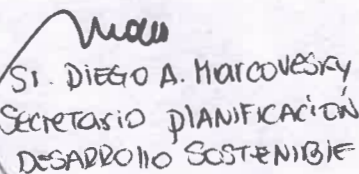 Sr. DIEGO A. Marcovesky
Secretario PLANIFICACIÓN
DESARROllO SOSTENIBlE